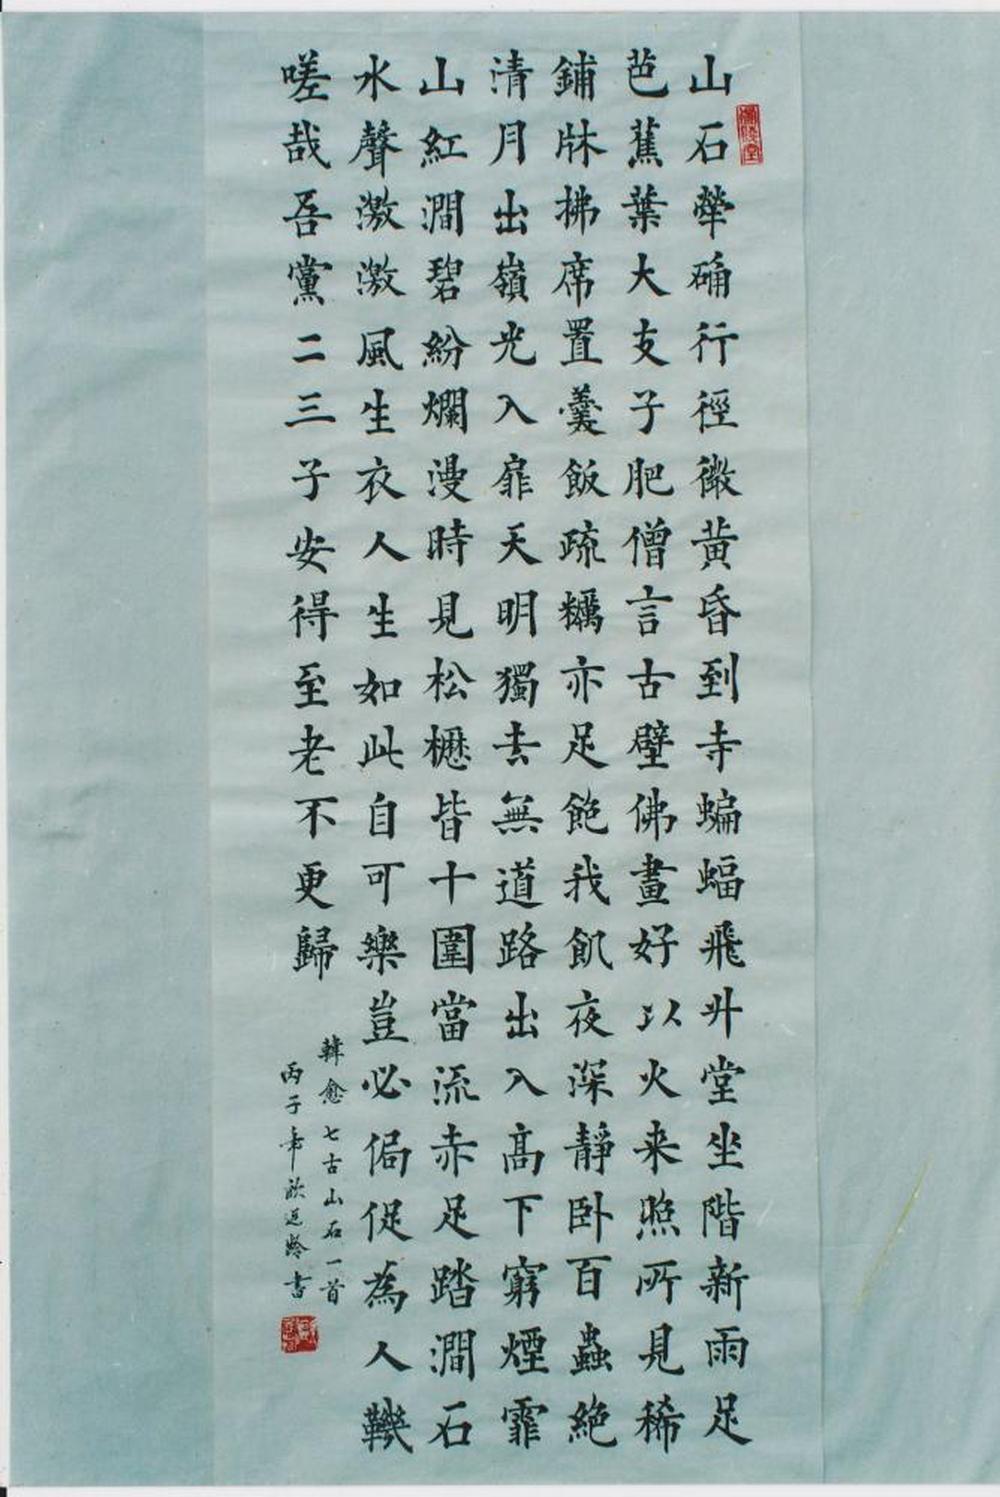 山石犖确行徑微黃昏到寺蝙蝠飛升堂坐階新雨足
芭蕉葉大支子肥僧言古壁佛畫好以火来照所見稀
鋪牀拂席置羹飯疏糲亦足飽我飢夜深靜卧百蟲絶
清月出嶺光入扉天明獨去無道路出入高下窮煙霏
山紅澗碧紛爛漫時見松櫪皆十圍當流赤足踏澗石
水聲激激風生衣人生如此自可樂豈必侷促為人鞿
嗟哉吾黨二三子安得至老不更歸
韓愈七古山石一首
丙子年書